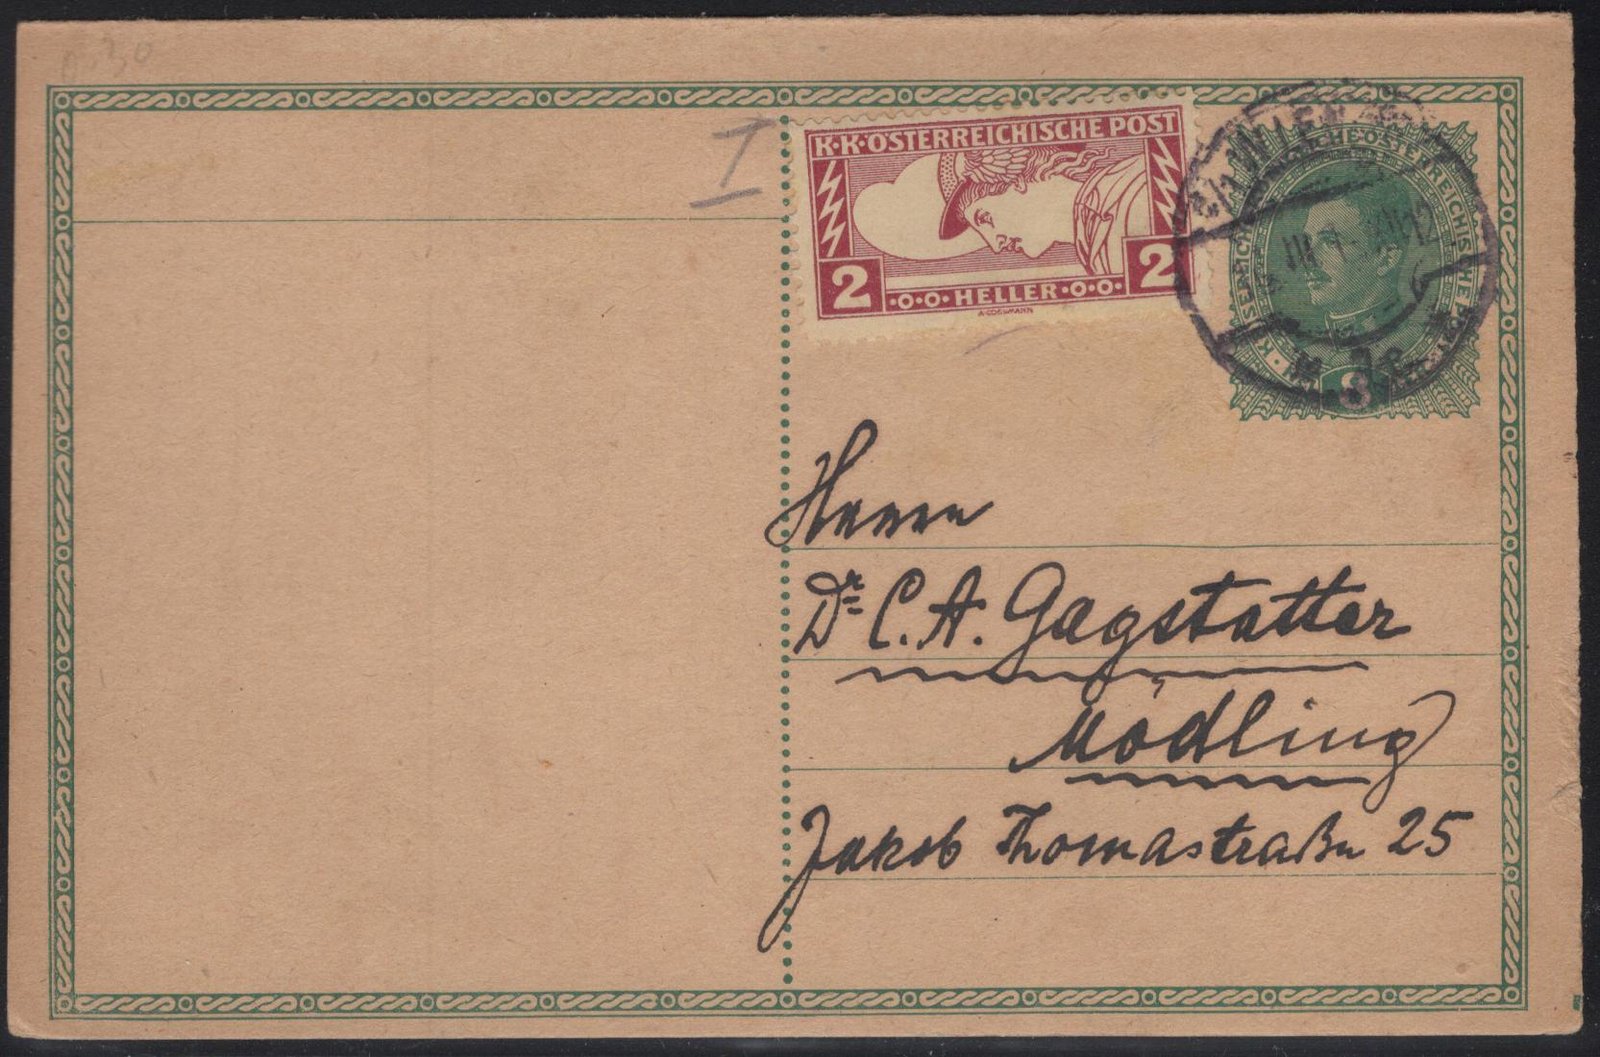 0.30
I
K.K.ÖSTERREICHISCHE POST
2 HELLER 2
WIEN
8
Herrn
Dr C. A. Gagstatter
Mödling
Jakob Thomastraße 25